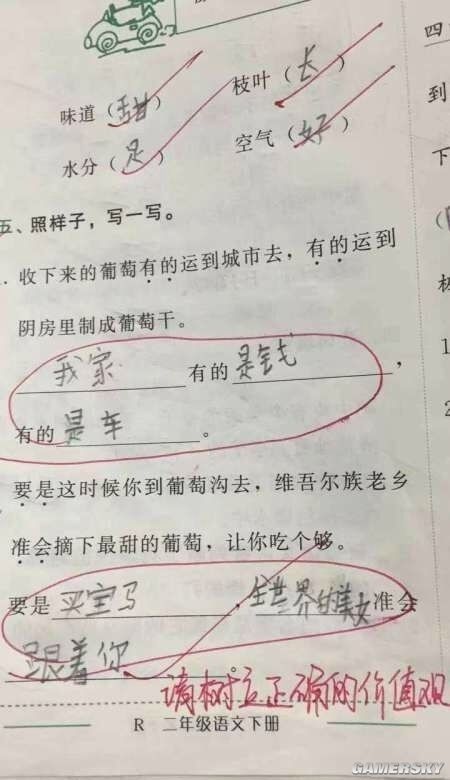 味道（甜） 枝叶（长）
水分（足） 空气（好）
五、照样子，写一写。
. 收下来的葡萄有的运到城市去，有的运到
阴房里制成葡萄干。
我家有的是钱，
有的是车。
要是这时候你到葡萄沟去，维吾尔族老乡
准会摘下最甜的葡萄，让你吃个够。
要是买宝马，全世界的美女准会
跟着你。
请树立正确的价值观
R 二年级语文下册
四
到
下
1
2
GAMERSKY